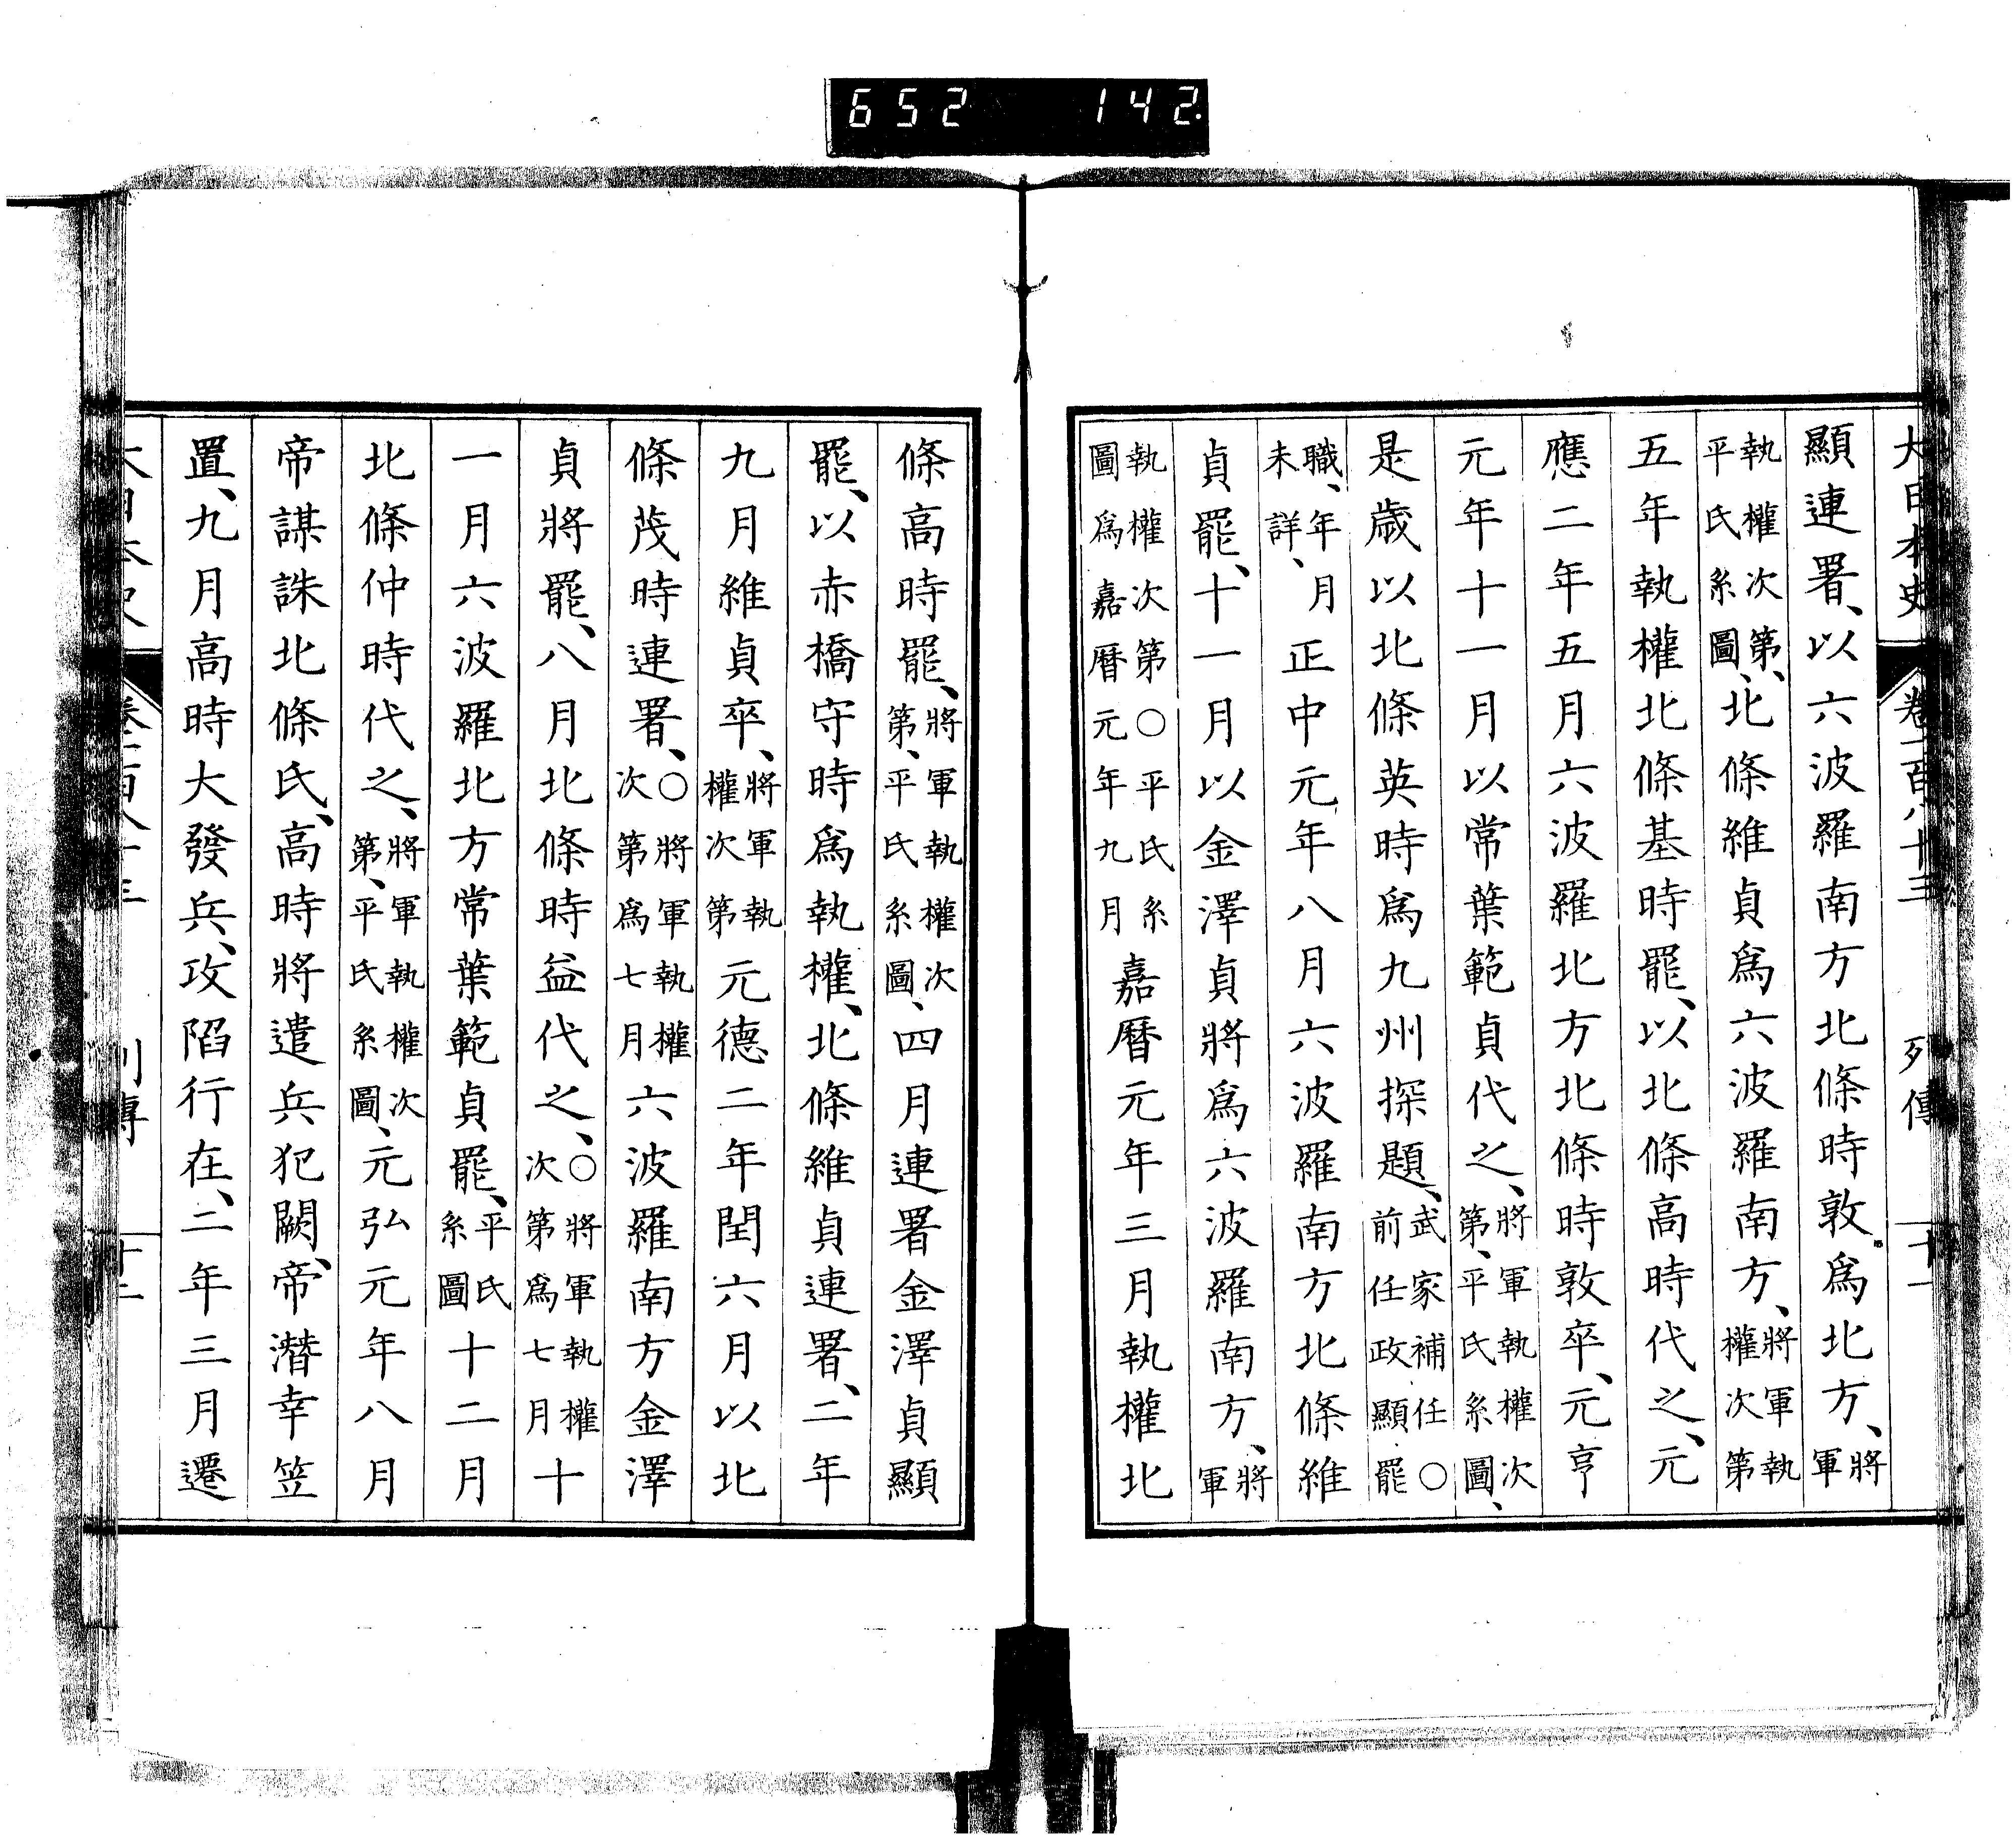 652 142
大日本史 卷一百八十三 列傳 十一
顯連署、以六波羅南方北條時敦爲北方、將軍
執權次第、平氏系圖、北條維貞爲六波羅南方、將軍執權次第
五年執權北條基時罷、以北條高時代之、元
應二年五月六波羅北方北條時敦卒、元亨
元年十一月以常葉範貞代之、將軍執權次第、平氏系圖、
是歲以北條英時爲九州探題、武家補任○前任政顯罷
職、年月未詳、正中元年八月六波羅南方北條維
貞罷、十一月以金澤貞將爲六波羅南方、將軍
執權次第○平氏系圖爲嘉曆元年九月嘉曆元年三月執權北
條高時罷、將軍執權次第、平氏系圖、四月連署金澤貞顯
罷、以赤橋守時爲執權、北條維貞連署、二年
九月維貞卒、將軍執權次第元德二年閏六月以北
條茂時連署、○將軍執權次第爲七月六波羅南方金澤
貞將罷、八月北條時益代之、○將軍執權次第爲七月十
一月六波羅北方常葉範貞罷、平氏系圖十二月
北條仲時代之、將軍執權次第、平氏系圖、元弘元年八月
帝謀誅北條氏、高時將遣兵犯闕、帝潛幸笠
置、九月高時大發兵、攻陷行在、二年三月遷